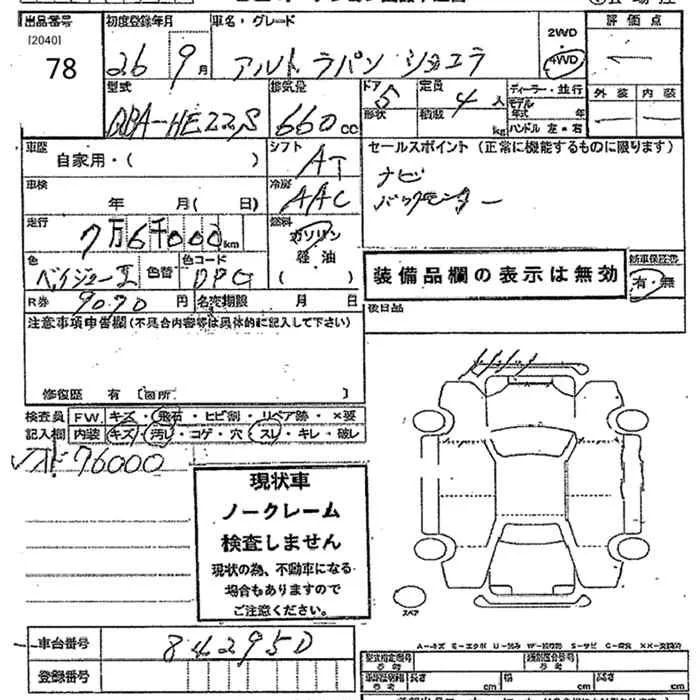 出品番号 初度登録年月 車名・グレード 評価点
[2040] 2WD
78 26 9月 アルト ラパン ショコラ 4WD
型式 排気量 ドア 5 定員 4人 ディーラー・並行 外装 内装
DBA-HE22S 660cc 形状 積載 kg モデル年式 年
ハンドル 左・右
車歴 自家用・( ) シフト AT セールスポイント (正常に機能するものに限ります)
車検 年 月 ( 日) 冷房 AAC ナビ
バックモニター
走行 7万6千000km 燃料 ガソリン
軽油
( )
色 ベイジュー 色替 色コード
装備品欄の表示は無効 新車保証書
有・無
R券 9090円 名変期限 月 日 後日品
注意事項申告欄(不具合内容等は具体的に記入して下さい)
修復歴 有 [箇所 ]
検査員 FW. キズ・飛石・ヒビ割・リペア跡・×要
記入欄 内装 キズ・汚れ・コゲ・穴・スレ・キレ・破レ
76000
現状車
ノークレーム
検査しません
現状の為、不動車になる
場合もありますので
ご注意ください。
スペア
車台番号 842950
登録番号
A-キズ E-エクボ U-凹み W-補修跡 S-サビ C-腐食 XX-交換済
型式指定番号 類別区分番号
長さ cm 幅 cm 高さ cm